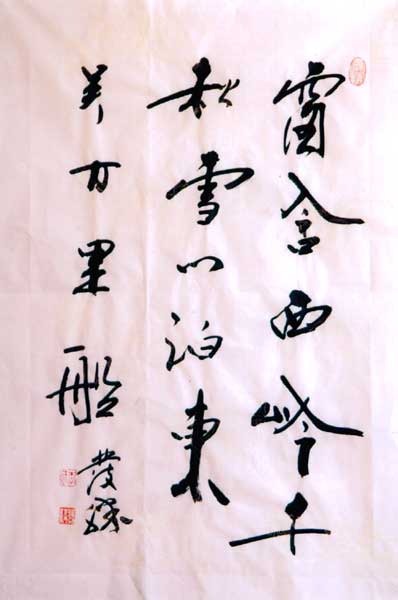 窗含西岭千
秋雪门泊東
吴万里船